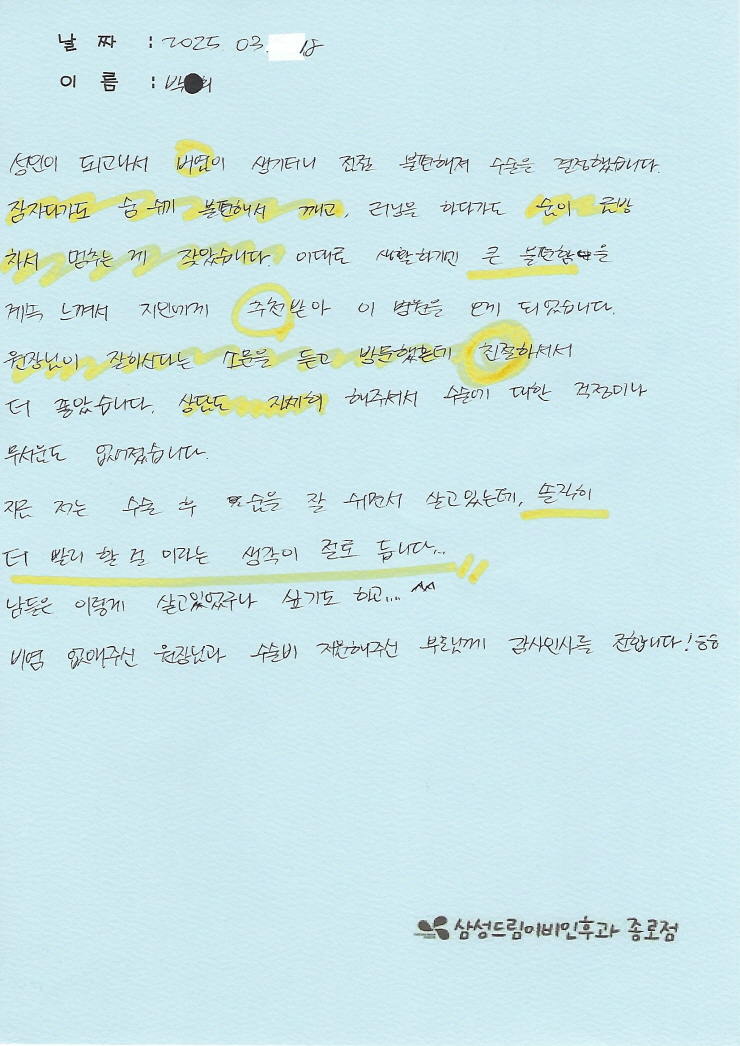 날 짜 : 2025 03. 18
이 름 : 박 희
성인이 되고나서 비염이 생기더니 점점 불편해져 수술을 결정했습니다.
잠자다가도 숨 쉬기 불편해서 깨고, 러닝을 하다가도 숨이 금방
차서 멈추는 게 잦았습니다. 이대로 생활하기엔 큰 불편함을
계속 느껴서 지인에게 추천받아 이 병원을 오게 되었습니다.
원장님이 잘하신다는 소문을 듣고 방문했는데 친절하셔서
더 좋았습니다. 상담도 자세히 해주셔서 수술에 대한 걱정이나
무서움도 없어졌습니다.
지금 저는 수술 후 숨을 잘 쉬면서 살고있는데, 솔직히
더 빨리 할 걸 이라는 생각이 절로 듭니다..
남들은 이렇게 살고있었구나 싶기도 하고... ^^
비염 없애주신 원장님과 수술비 지원해주신 부모님께 감사인사를 전합니다! ㅎㅎ
삼성드림이비인후과 종로점